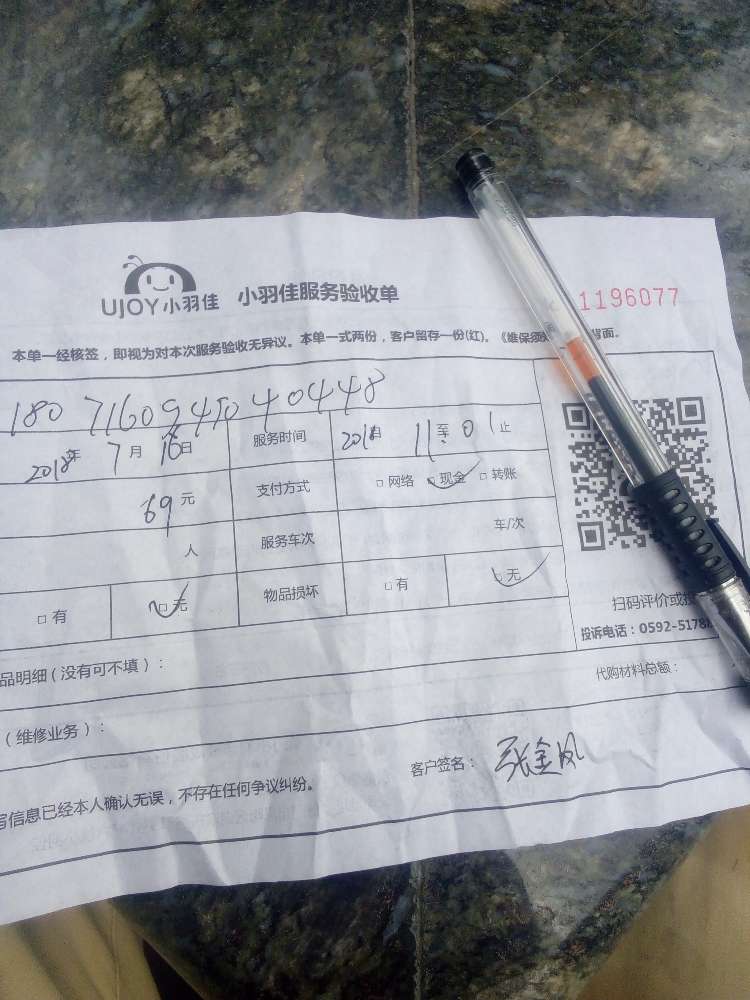 UJOY小羽佳 小羽佳服务验收单 1196077
本单一经核签，即视为对本次服务验收无异议。本单一式两份，客户留存一份(红)。《维保须 背面。
180 7160945040448
2018年 7月 16日 服务时间 11至 01止
69元 支付方式 □网络 □现金 □转账
人 服务车次 车/次
□有 □无 物品损坏 □有 □无
扫码评价或投
投诉电话：0592-5178
品明细（没有可不填）： 代购材料总额：
（维修业务）：
客户签名： 张金凤
写信息已经本人确认无误，不存在任何争议纠纷。